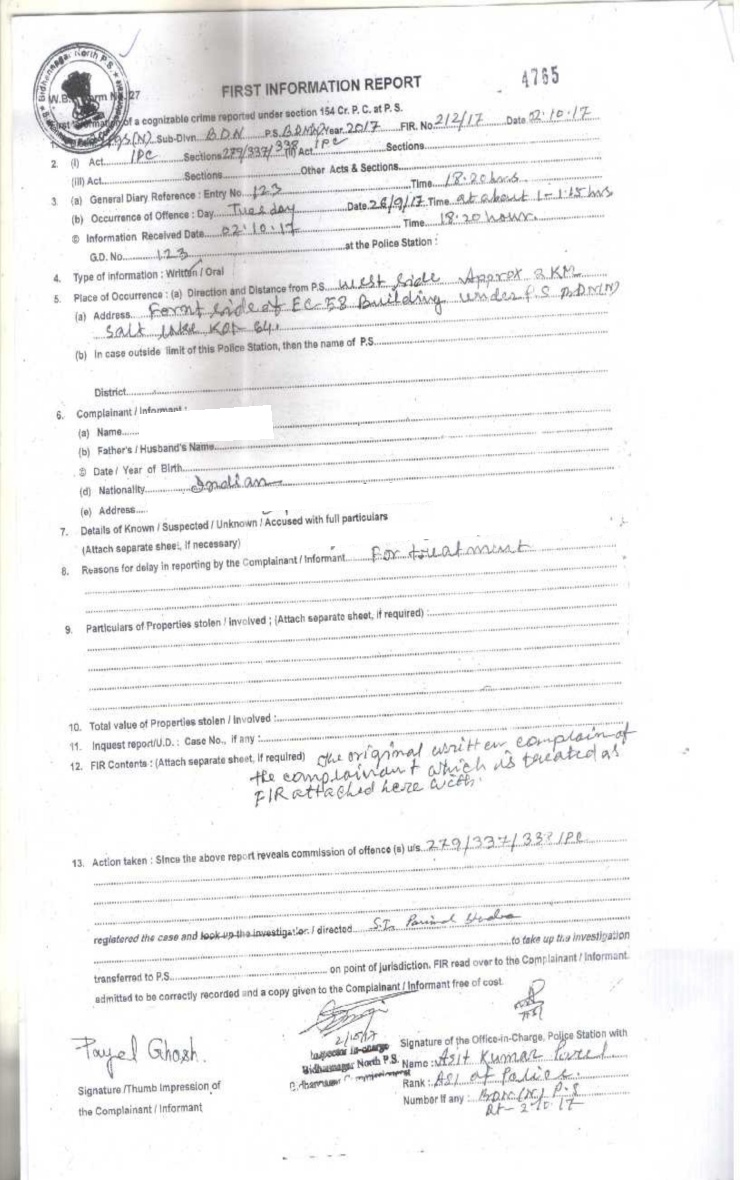 Bidhannagar North P.S.
W.B. Form No. 27
FIRST INFORMATION REPORT
4765
First Information of a cognizable crime reported under section 154 Cr. P. C. at P. S.
Sub-Divn. BDN P.S. BDN(N) Year 2017 FIR. No. 212/17 Date 02.10.17
2. (I) Act IPC Sections 279/337/338 (II) Act IPC Sections
(III) Act Sections Other Acts & Sections
3 (a) General Diary Reference : Entry No. 123 Time 18.20 hrs
(b) Occurrence of Offence : Day Tuesday Date 26/9/17 Time at about 1-1.15 hrs
© Information Received Date 02.10.17 Time 18.20 hour.
G.D. No. 123 at the Police Station :
4. Type of information : Written / Oral
5. Place of Occurrence : (a) Direction and Distance from P.S. West side Approx 2 KM
(a) Address Fornt side of EC-58 Building under P.S BDN(N)
Salt Lake KOL-64.
(b) In case outside limit of this Police Station, then the name of P.S.
District
6. Complainant / Informant :
(a) Name
(b) Father's / Husband's Name
© Date / Year of Birth
(d) Nationality Indian
(e) Address
7. Details of Known / Suspected / Unknown / Accused with full particulars
(Attach separate sheet, if necessary)
8. Reasons for delay in reporting by the Complainant / Informant For treatment
9. Particulars of Properties stolen / Involved ; (Attach separate sheet, if required) :
10. Total value of Properties stolen / Involved :
11. Inquest report/U.D. : Case No., if any :
12. FIR Contents : (Attach separate sheet, if required) The original written complain of
the complainant which is treated as
FIR attached here with.
13. Action taken : Since the above report reveals commission of offence (s) u/s 279/337/338 IPC
registered the case and took up the investigation / directed S.I.
to take up the investigation
transferred to P.S. on point of jurisdiction. FIR read over to the Complainant / Informant.
admitted to be correctly recorded and a copy given to the Complainant / Informant free of cost.
Payel Ghosh.
Signature /Thumb Impression of
the Complainant / Informant
2/10/17
Inspector in-charge
Bidhannagar North P.S.
Signature of the Office-in-Charge, Police Station with
Name : Asit Kumar
Rank : ASI of Police.
Number if any : BDN (N) P.S
Dt- 2.10.17